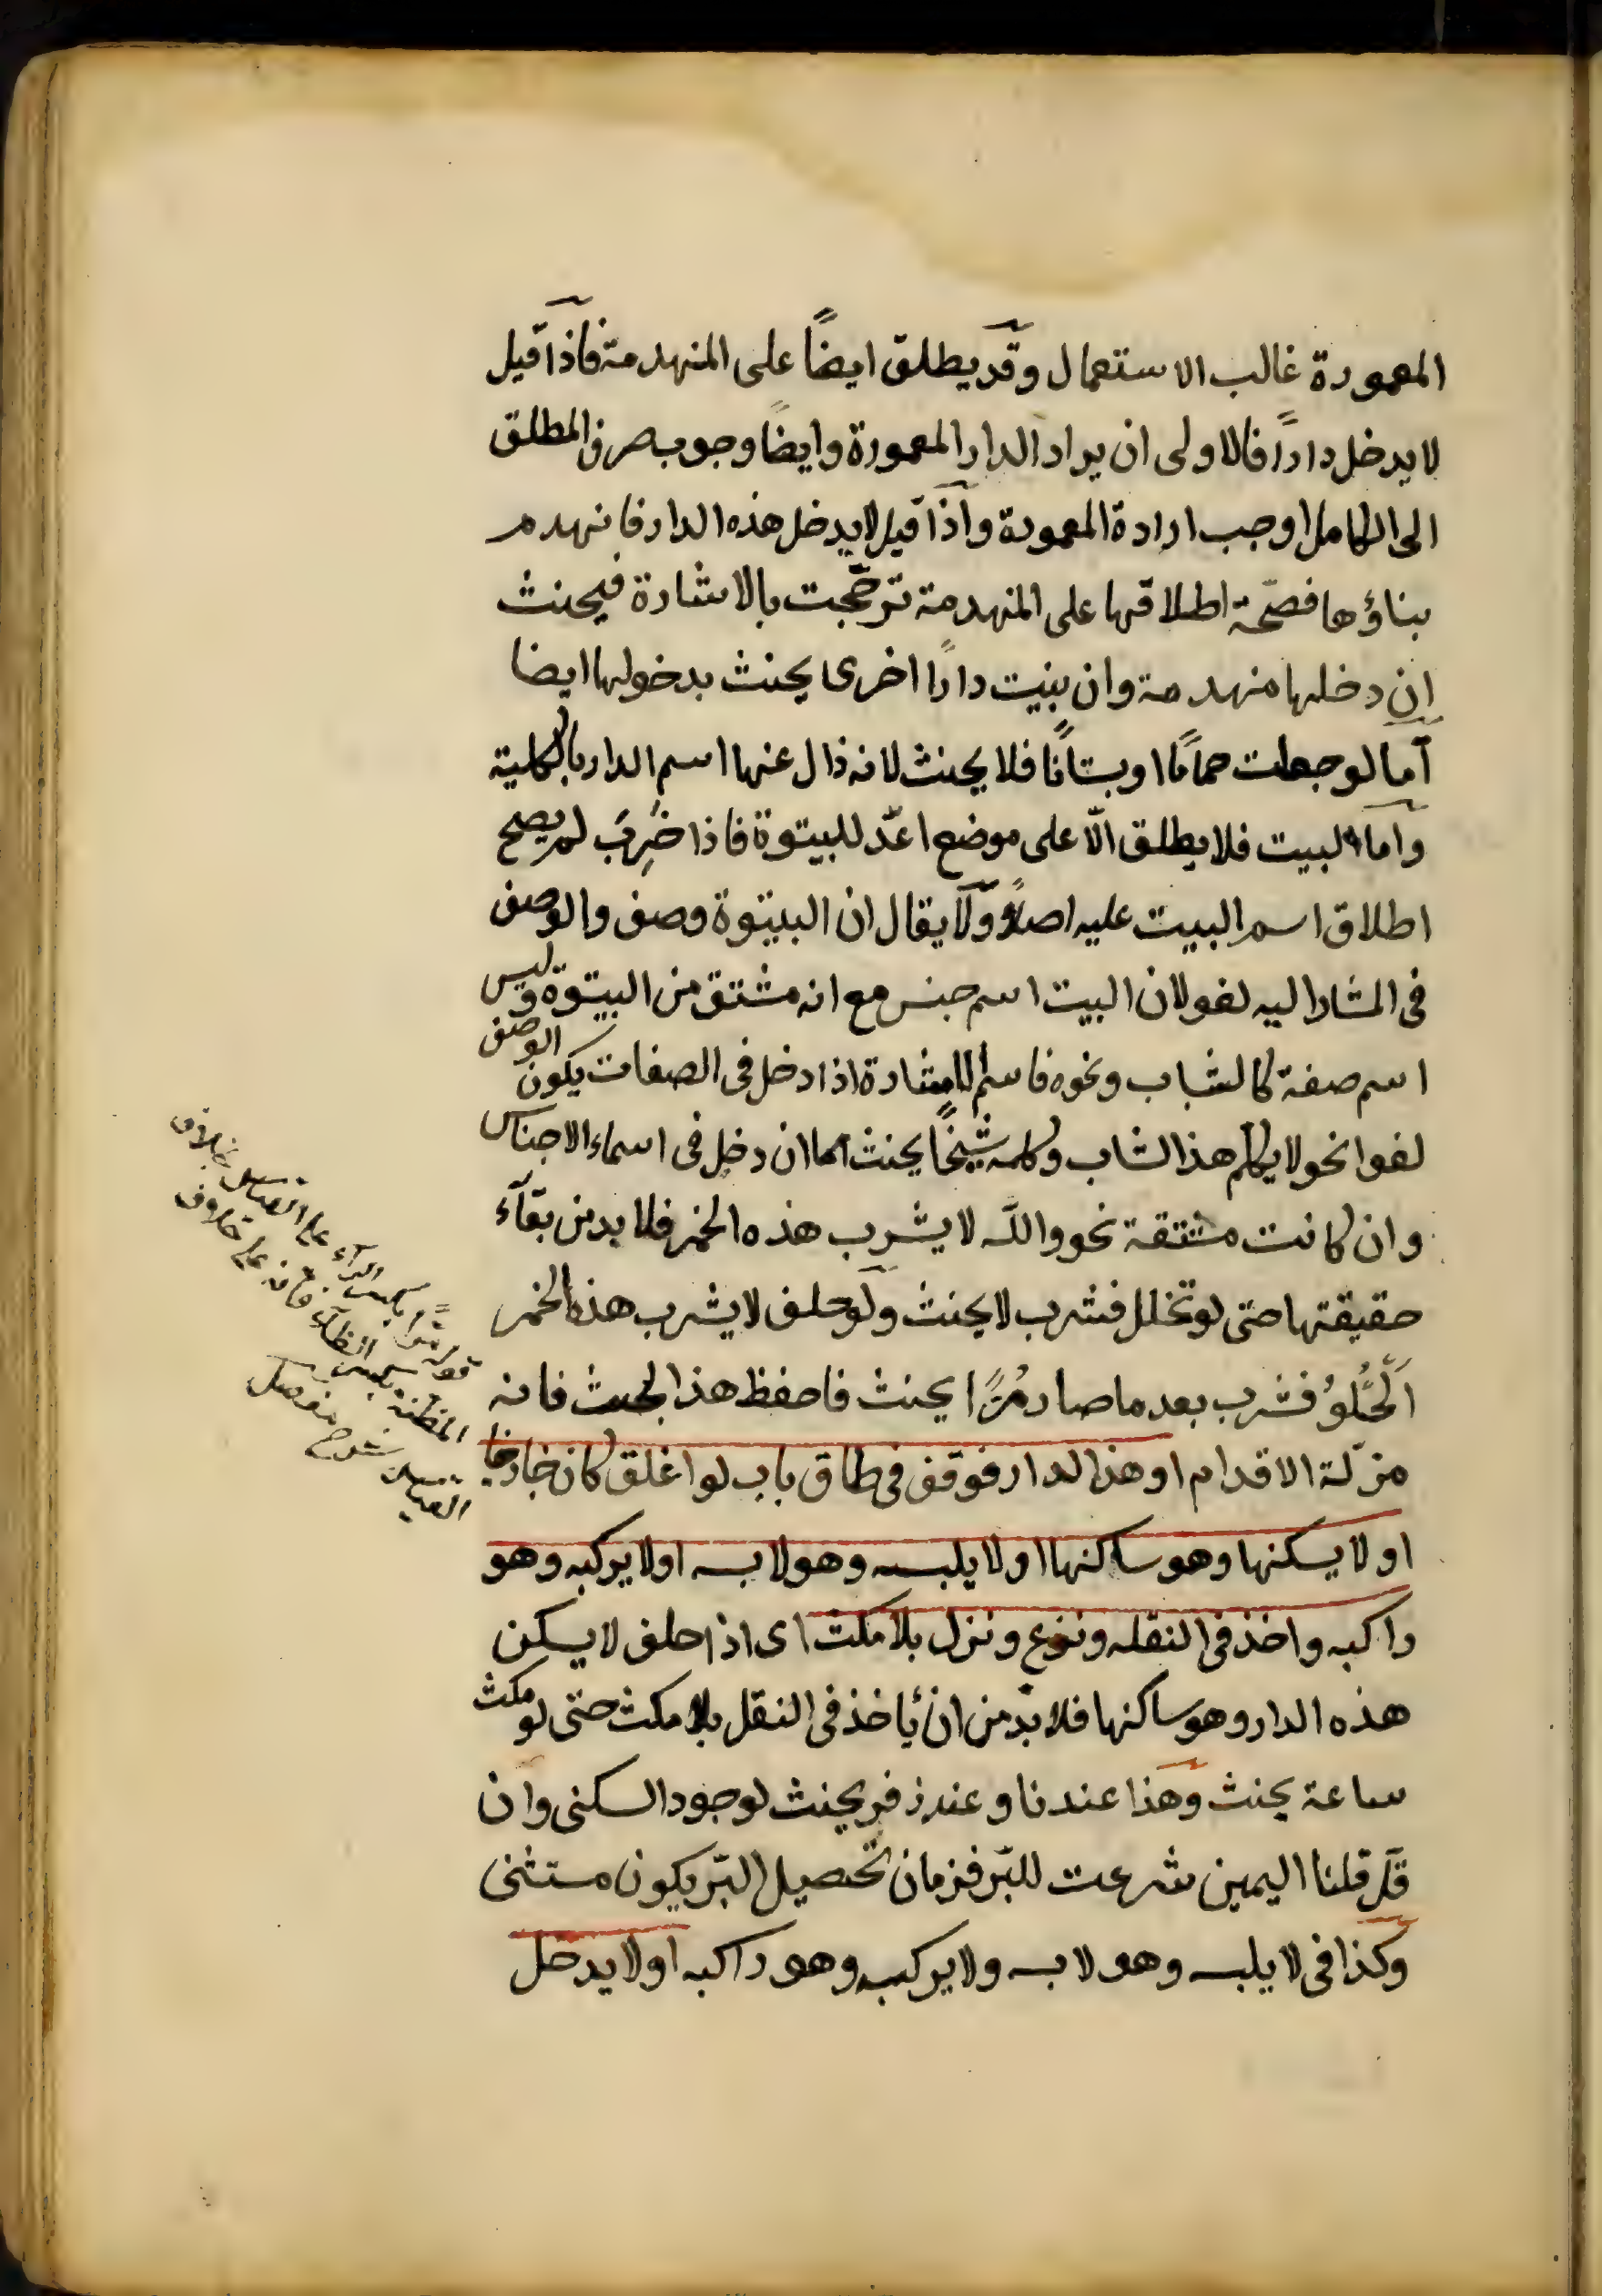 المعمورة غالب الاستعمال وقد يطلق ايضًا على المنهدمة فاذا قيل
لا يدخل دارًا فالاولى ان يراد الدار المعمورة وايضًا وجوب صرف المطلق
الى الكامل اوجب ارادة المعمورة واذا قيل لا يدخل هذه الدار فانهدم
بناؤها فصحّة اطلاقها على المنهدمة ترجّحت بالاشارة فيحنث
ان دخلها منهدمة وان بنيت دارًا اخرى يحنث بدخولها ايضا
اما لو جعلت حمامًا او بستانًا فلا يحنث لانه زال عنها اسم الدار بالكلية
واما البيت فلا يطلق الّا على موضع اعدّ للبيتوتة فاذا خَرِبَ لم يصح
اطلاق اسم البيت عليه اصلًا ولا يقال ان البيتوتة وصف والوصف
فى المشار اليه لغو لان البيت اسم جنس مع انه مشتق من البيتوتة وليس
اسم صفة كالشاب ونحوه فاسم الاشارة اذا دخل فى الصفات يكون الوصف
لغوا نحو لا يكلم هذا الشاب وكلمه شيخًا يحنث اما ان دخل فى اسماء الاجناس
وان كانت مشتقة نحو والله لا يشرب هذه الخمر فلا بد من بقآء
حقيقتها حتى لو تخلل فشرب لا يحنث ولو حلف لا يشرب هذه الخمر
الحُلوُ فشرب بعد ما صار مُرًّا يحنث فاحفظ هذا البحث فانه
مزلّة الاقدام او هذا الدار فوقف فى طاق باب لو اغلق كان خارجا
او لا يسكنها وهو ساكنها او لا يلبسه وهو لابسه او لا يركبه وهو
راكبه واخذ فى النقله ونزع ونزل بلا مكث اى اذا حلف لا يسكن
هذه الدار وهو ساكنها فلا بدّ من ان يأخذ فى النقل بلا مكث حتى لو مكث
ساعة يحنث وهذا عندنا وعند زفر يحنث لوجود السكنى وان
قلّ قلنا اليمين شرعت للبّر فزمان تحصيل البّر يكون مستثنى
وكذا فى لا يلبسه وهو لابسه ولا يركب وهو راكبه او لا يدخل
قوله مرًّا بكسر الرآء على القياس بخلاف
المظنه بكسر الظآء فانه على خلاف
القياس شرح مفصل